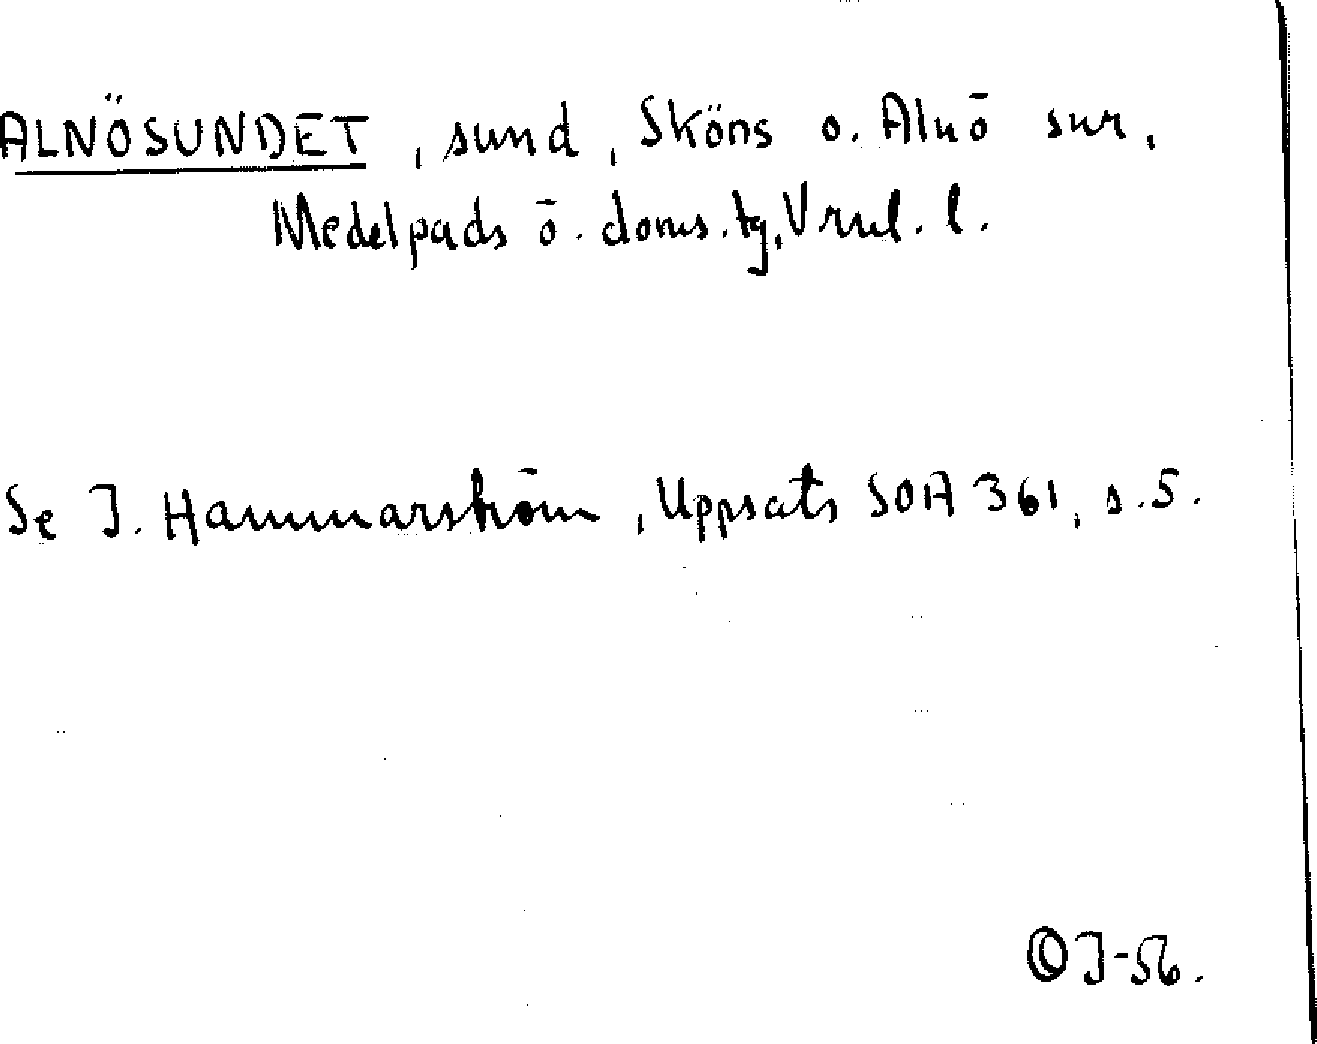 ALNÖSUNDET, sund, Sköns o. Alnö snr,
Medelpads ö. doms.tg, Vrnl. l.
Se J. Hammarström, Uppsats SOA 361, s.5.
J-56.